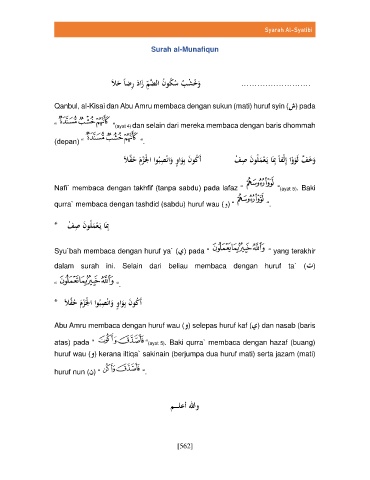 Syarah Al-Syatibi
Surah al-Munafiqun
وَخُشْبٌ سُكُونُ الضَّمِّ زَادَ رِضاً حَلاَ ..........................
Qanbul, al-Kisai dan Abu Amru membaca dengan sukun (mati) huruf syin (ش) pada
" كَأَنَّهُمْ خُشْبٌ مُسَنَّدَةٌ "(ayat 4) dan selain dari mereka membaca dengan baris dhommah
(depan) " كَأَنَّهُمْ خُشُبٌ مُسَنَّدَةٌ ".
وَخَفَّ لَوَوْا إِلْفاً بِمَا يَعْمَلُونَ صِفْ أَكُونَ بِوَاوٍ وَانْصِبُوا الْجَزْمَ حُفَّلاَ
Nafi` membaca dengan takhfif (tanpa sabdu) pada lafaz " لَوَوْا رُءُوسَهُمْ "(ayat 5). Baki
qurra` membaca dengan tashdid (sabdu) huruf wau (و) " لَوَّوْا رُءُوسَهُمْ ".
* بِمَا يَعْمَلُونَ صِفْ
Syu`bah membaca dengan huruf ya` (ي) pada " وَاللَّهُ خَبِيرٌ بِمَا يَعْمَلُونَ " yang terakhir
dalam surah ini. Selain dari beliau membaca dengan huruf ta` (ت)
" وَاللَّهُ خَبِيرٌ بِمَا تَعْمَلُونَ ".
* أَكُونَ بِوَاوٍ وَانْصِبُوا الْجَزْمَ حُفَّلاَ
Abu Amru membaca dengan huruf wau (و) selepas huruf kaf (ك) dan nasab (baris
atas) pada " فَأَصَّدَّقَ وَأَكُونَ "(ayat 5). Baki qurra` membaca dengan hazaf (buang)
huruf wau (و) kerana iltiqa` sakinain (berjumpa dua huruf mati) serta jazam (mati)
huruf nun (ن) " فَأَصَّدَّقَ وَأَكُنْ ".
والله أعلم
[562]